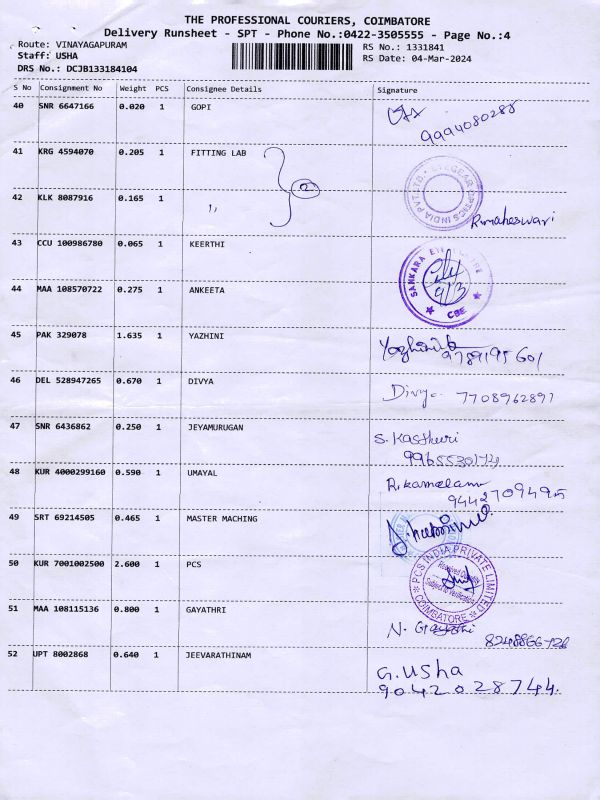 THE PROFESSIONAL COURIERS, COIMBATORE
Delivery Runsheet - SPT - Phone No.:0422-3505555 - Page No.:4
Route: VINAYAGAPURAM
RS No.: 1331841
Staff: USHA
RS Date: 04-Mar-2024
DRS No.: DCJB133184104
S No Consignment No Weight PCS Consignee Details Signature
40 SNR 6647166 0.020 1 GOPI
9994080288
41 KRG 4594070 0.205 1 FITTING LAB
2
42 KLK 8087916 0.165 1 ,,
R.maheswari
43 CCU 100986780 0.065 1 KEERTHI
SANKARA EYE CENTRE
CBE
44 MAA 108570722 0.275 1 ANKEETA
45 PAK 329078 1.635 1 YAZHINI
9789195601
46 DEL 528947265 0.670 1 DIVYA Divya 7708962891
47 SNR 6436862 0.250 1 JEYAMURUGAN S. Kasthuri
48 KUR 4000299160 0.590 1 UMAYAL R.kamalam
9442709495
49 SRT 69214505 0.465 1 MASTER MACHING
50 KUR 7001002500 2.600 1 PCS
PCS INDIA PRIVATE LIMITED
Subject to Verification
COIMBATORE
51 MAA 108115136 0.800 1 GAYATHRI N. Gayathri
52 UPT 8002868 0.640 1 JEEVARATHINAM G.USha
9042028744.